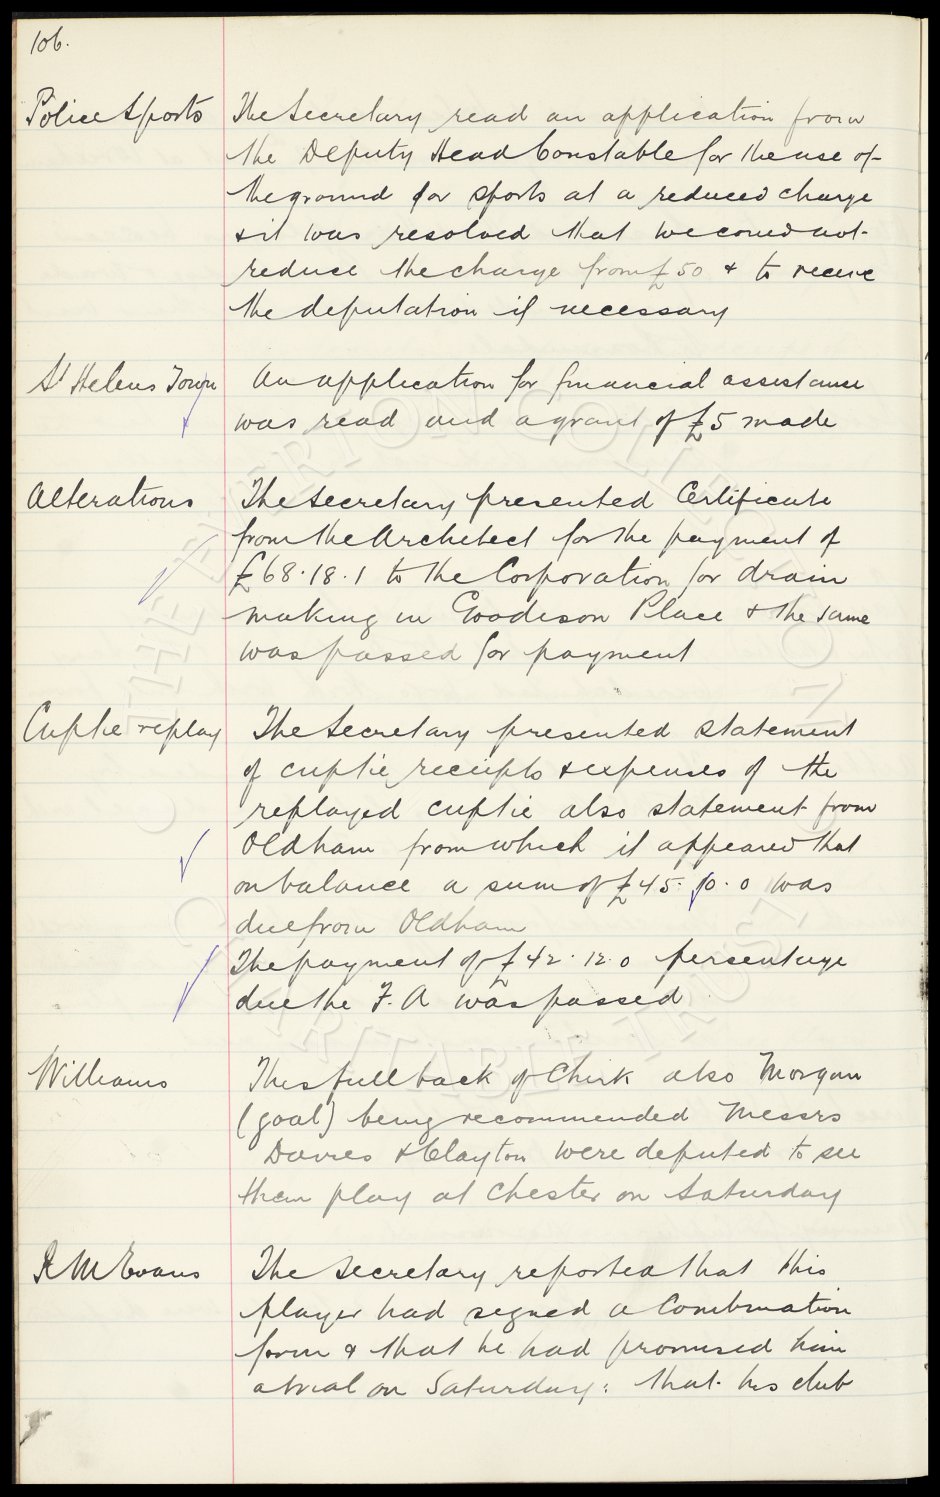 106.
Police Sports The Secretary read an application from
the Deputy Head Constable for the use of
the ground for sports at a reduced charge
& it was resolved that we could not
reduce the charge from £50 & to receive
the deputation if necessary
St Helens Town An application for financial assistance
was read and a grant of £5 made
Alterations The Secretary presented Certificate
from the Architect for the payment of
£68.18.1 to the Corporation for drain
making in Goodison Place & the same
was passed for payment
Cuptie replay The Secretary presented statement
of cuptie receipts & expenses of the
replayed cuptie also statement from
Oldham from which it appeared that
on balance a sum of £45. 10. 0 was
due from Oldham
The payment of £42. 12. 0 persentage
due the F. A was passed
Williams This full back of Chirk also Morgan
(goal) being recommended Messrs
Davies & Clayton were deputed to see
them play at Chester on Saturday
R M Evans The Secretary reported that this
player had signed a Combination
form & that he had promised him
a trial on Saturday: that his club
THE EVERTON COLLECTION
CHARITABLE TRUST